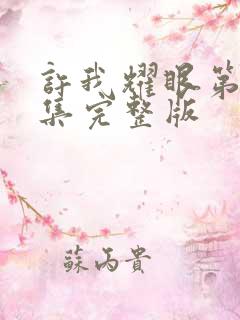 許我耀眼第
集完整版
蘇丙貴